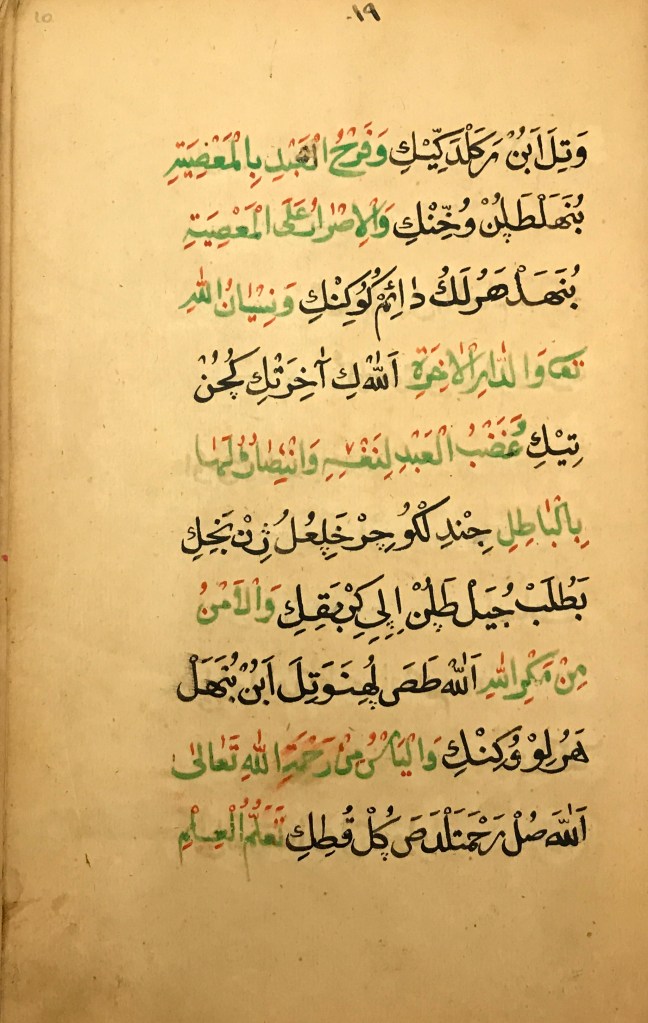 ١٩
وَتِلَ اَبُنْ رَكَلْدَكِيّكِ وَفَرْحُ الْعَبْدِ بِالْمَعْصِيَةِ
بُنَهَلْطَلِنْ وُخِّنْكِ وَالْاِصْرَارُ عَلَى الْمَعْصِيَةِ
بُنَهَلْ هَرُلَكُ دٰائِمْ كُوكِنْكِ وَنِسْيَانُ اللّٰهِ
تعا وَالدَّارِ الْاٰخِرَةِ اَللّٰهْ كِ آخِرَتْكِ كُچُنْ
تِيْكِ غَضَبُ الْعَبْدِ لِنَفْسِهِ وَانْتِصَارُ لَهَا
بِالْبَاطِلِ جِنْدِ لَكُو حِرْ خَلِعُلْ ڗِنْ بَخِكِ
بَطُلَبْ جُيَلْ طَلِنْ اِلِىِ كِرْ بَقِكِ وَالْاَمْنُ
مِنْ مَكْرِ اللّٰهِ اَللّٰهْ طَصَ لُهِنَ وَتِلَ اَبُنْ بُنَهَلْ
هَرُلِوْ وُكِنْكِ وَالْيَأْسُ مِنْ رَحْمَةِ اللّٰهِ تَعَالىٰ
اَللّٰهَ صُلْ رَحْمَتَلْدَ صَ كُلْ قُطِكِ تَعَلُّمُ الْعِلْمِ